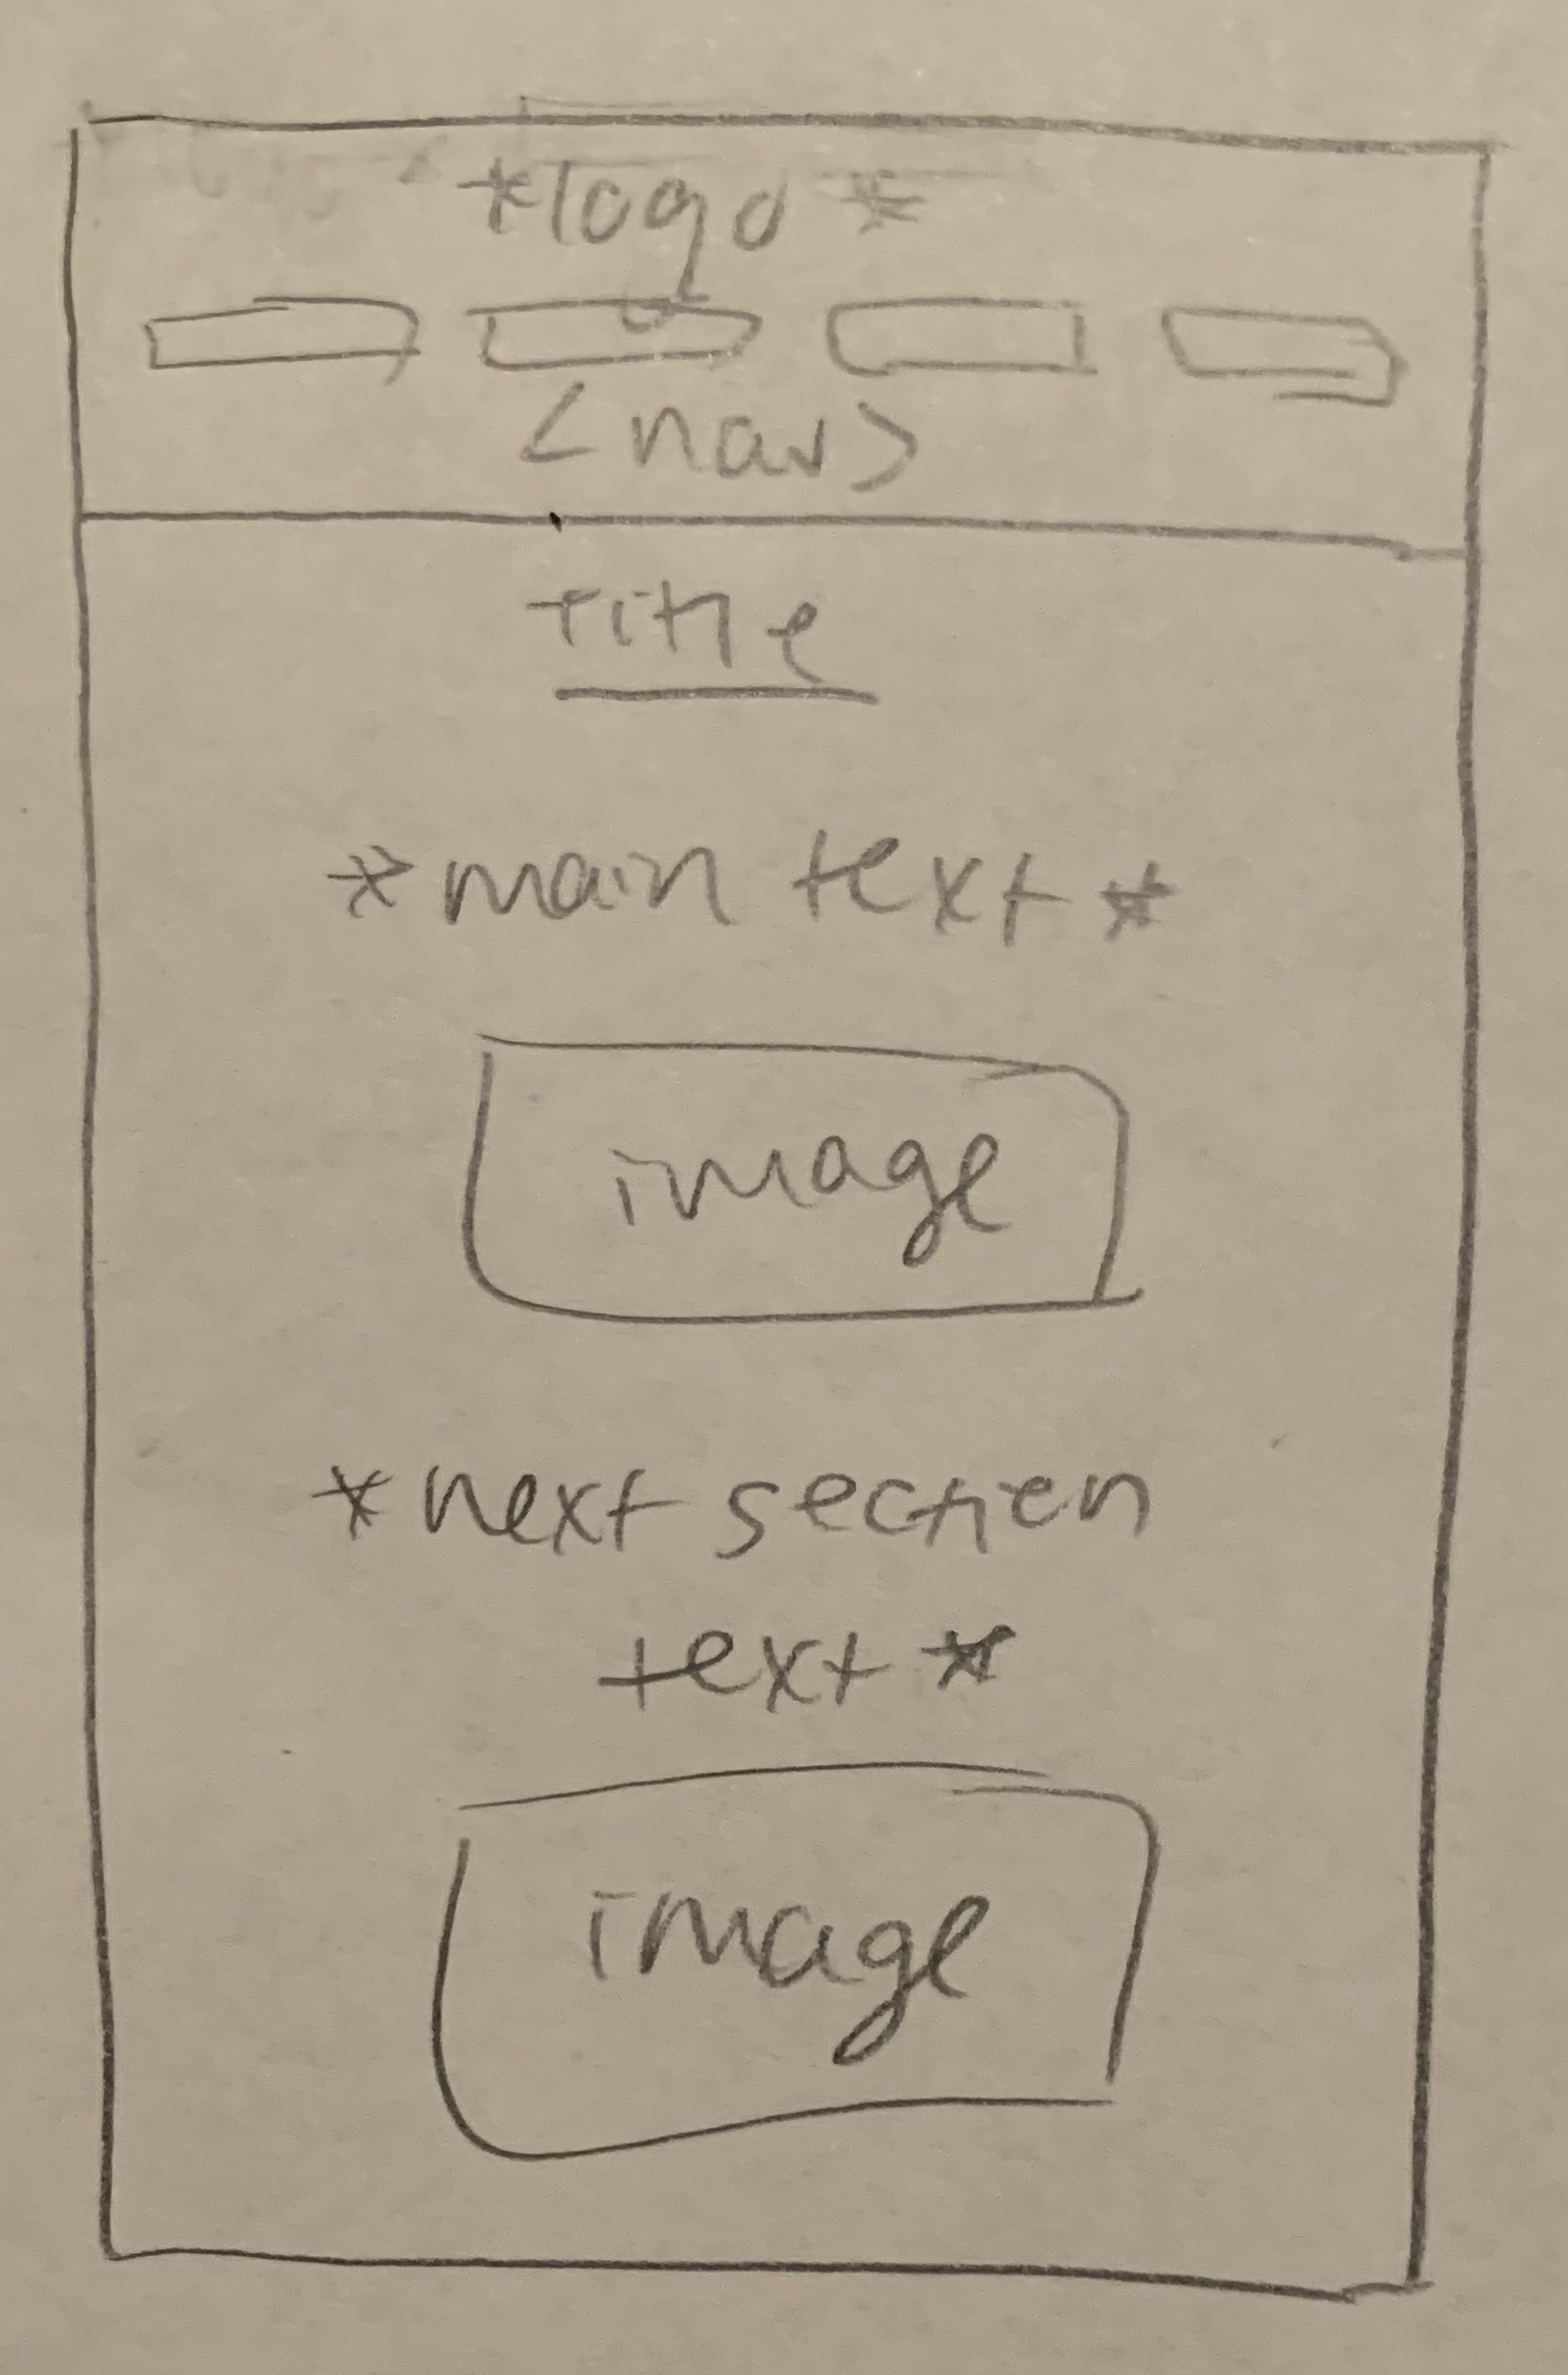 *logo*
<nav>
Title
*main text*
image
*next section
text*
image